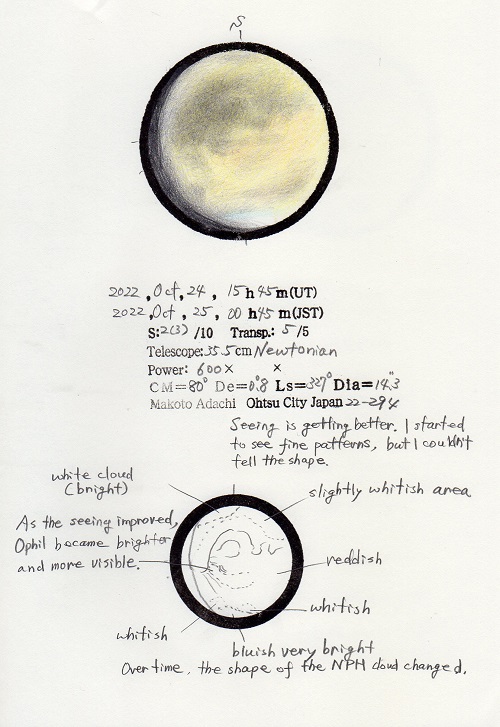 S
2022, Oct, 24, 15h 45m(UT)
2022, Oct, 25, 00h 45m(JST)
S:2(3)/10 Transp.: 5/5
Telescope:35.5cm Newtonian
Power: 600× ×
CM=80° De=0.°8 Ls=327° Dia=14."3
Makoto Adachi Ohtsu City Japan 22-294
Seeing is getting better. I started
to see fine patterns, but I couldn't
tell the shape.
white cloud
(bright)
slightly whitish area
As the seeing improved,
Ophil became brighter
and more visible.
reddish
whitish
whitish
bluish very bright
Over time, the shape of the NPH cloud changed.